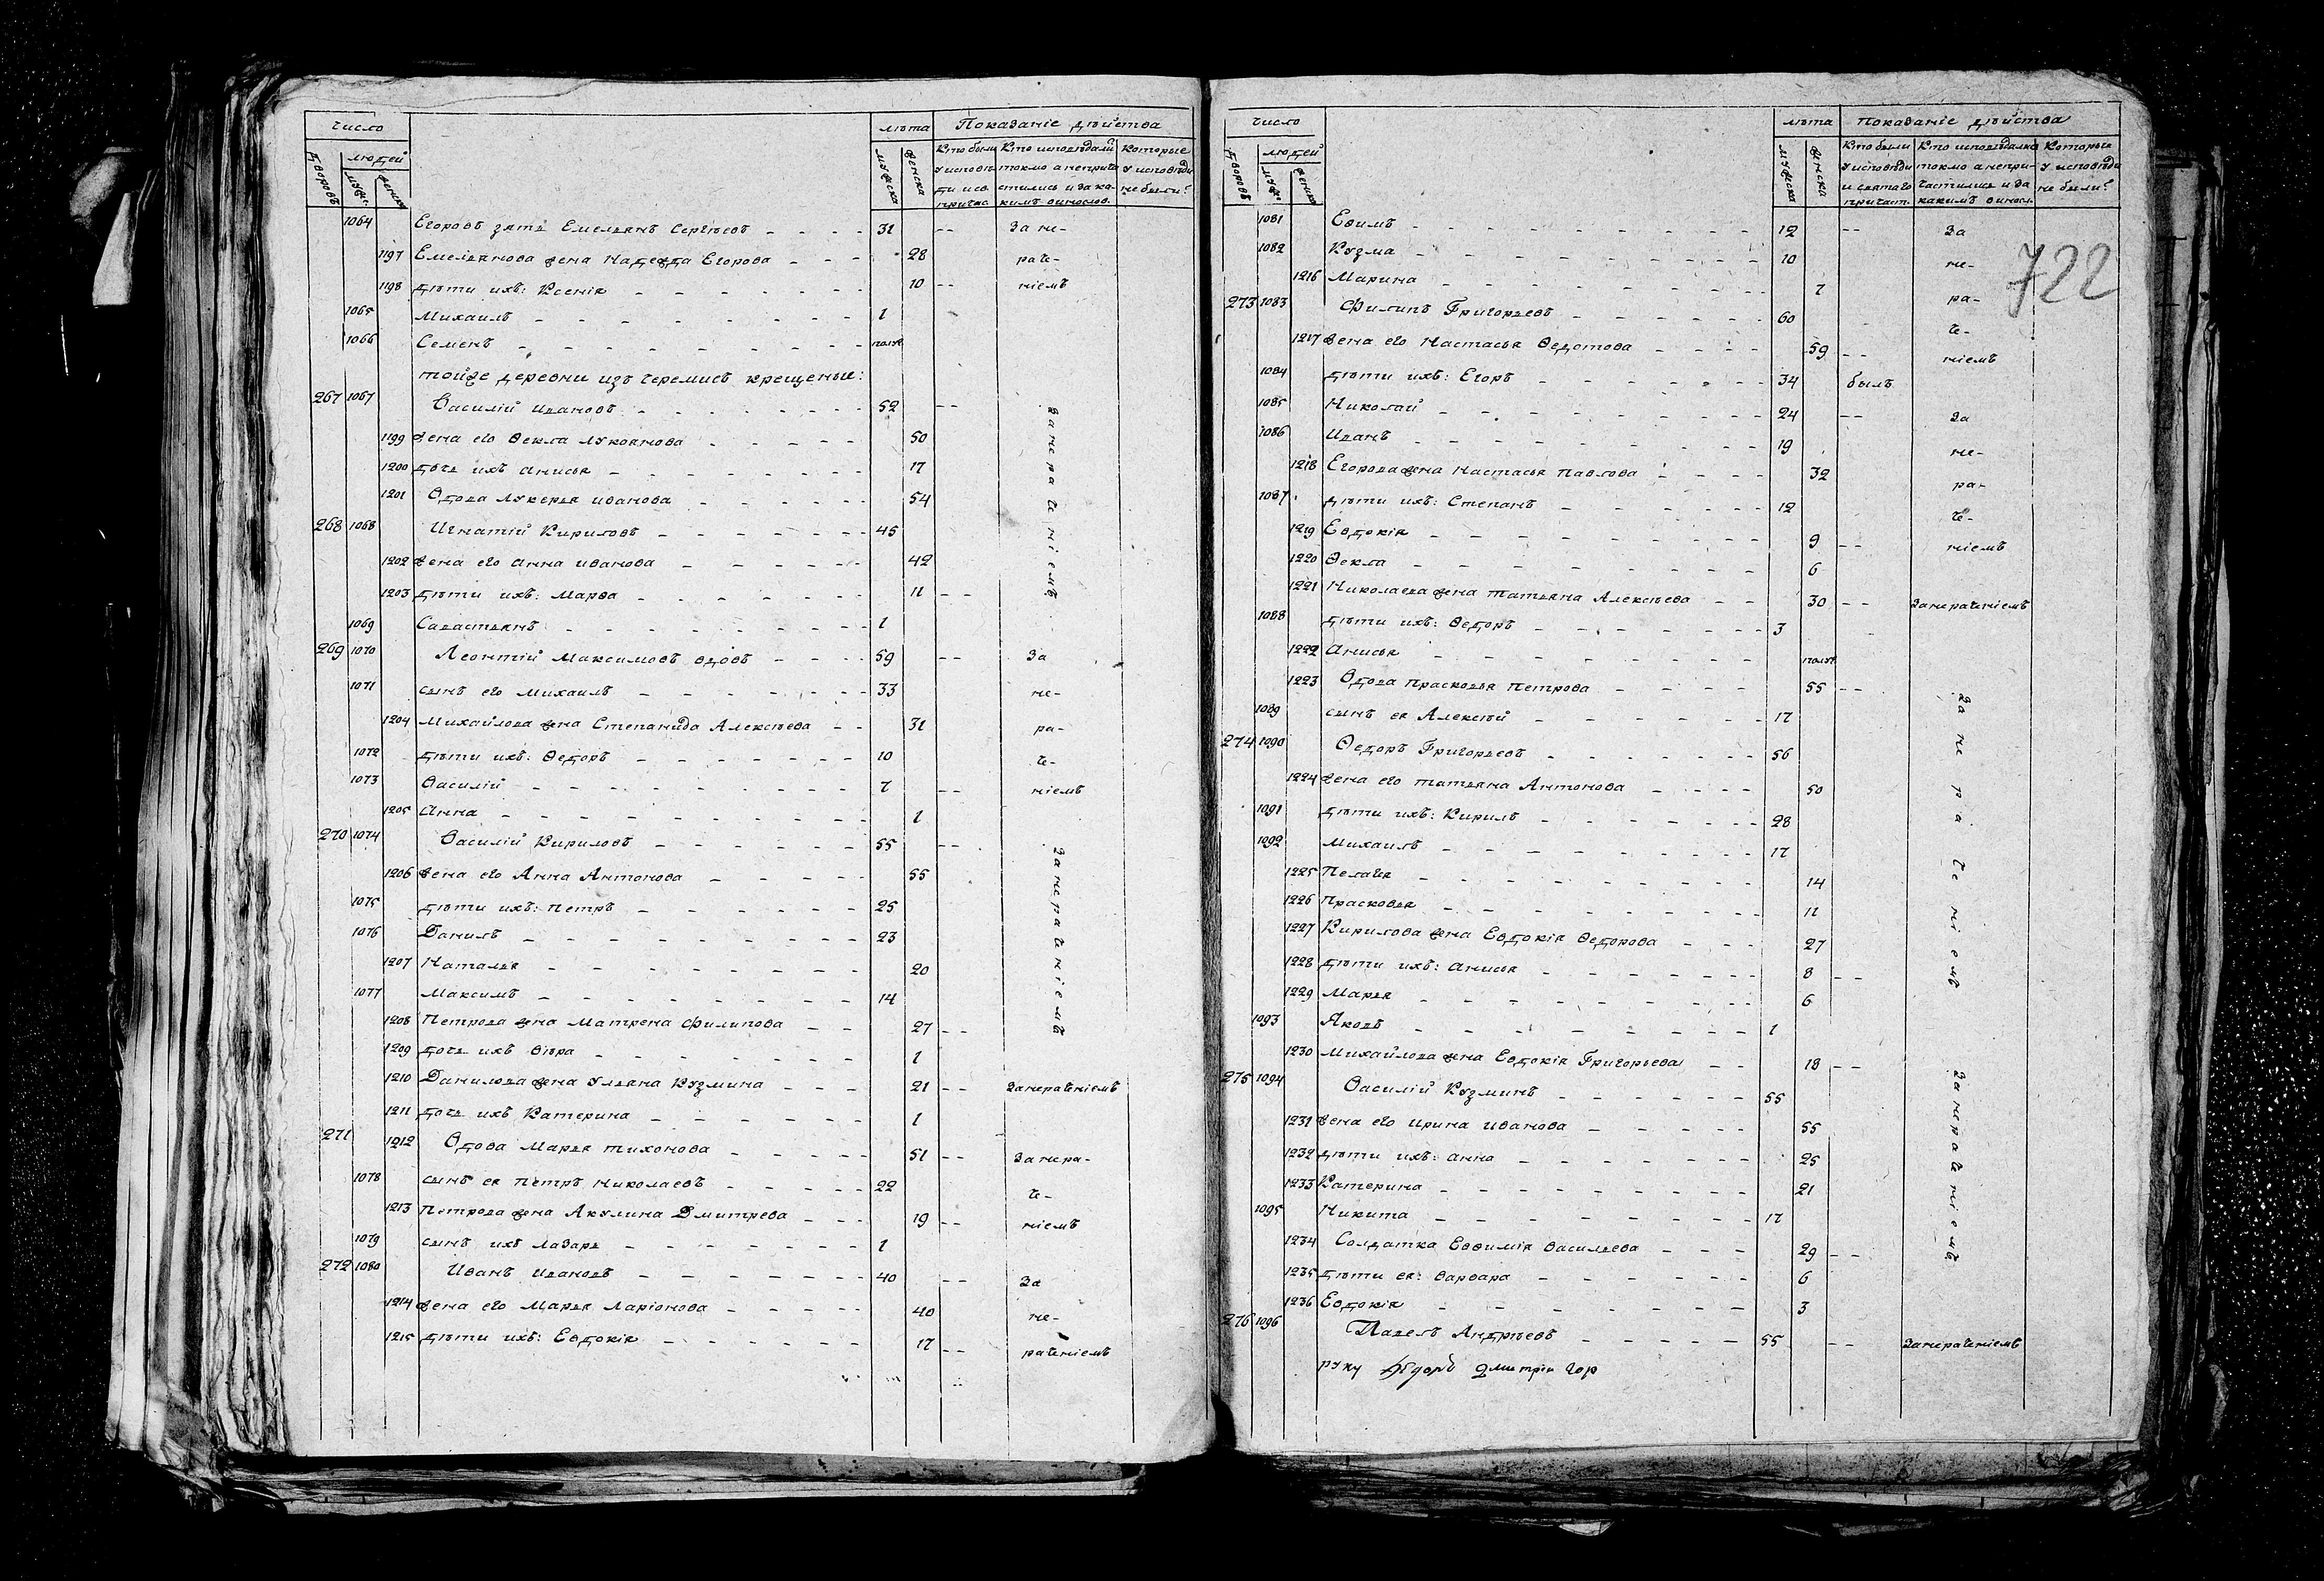 число лѣта Показаніе дѣйства
дворовъ людей мужеска женска Кто были у исповѣди и св. причас. Кто исповѣдали токмо а неприча стились и за ка- кимъ винослов. Которые у исповѣди не были?
муже. женска
1064 Егоровъ зять Емельянъ Сергѣевъ 31 За не-
1197 Емельянова жена Надежда Егорова 28 раче-
1198 дѣти ихъ: Ксенія 10 ніемъ
1065 Михаилъ 1
1066 Семенъ полг.
тойже деревни изъ черемисъ крещеные:
267 1067 Василій Ивановъ 52 За нераченіемъ
1199 жена его Ѳекла Лукоянова 50
1200 дочь ихъ Анисья 17
1201 Вдова Лукерья Иванова 54
268 1068 Игнатій Кириловъ 45
1202 жена его Анна Иванова 42
1203 дѣти ихъ: Марѳа 11
1069 Савастьянъ 1
269 1070 Леонтій Максимовъ вдовъ 59 За
1071 сынъ его Михаилъ 33 не-
1204 Михайлова жена Степанида Алексѣева 31 ра-
1072 дѣти ихъ: Ѳедоръ 10 че-
1073 Василій 7 ніемъ
1205 Анна 1
270 1074 Василій Кириловъ 55 За нераченіемъ
1206 жена его Анна Антонова 55
1075 дѣти ихъ: Петръ 25
1076 Данилъ 23
1207 Наталья 20
1077 Максимъ 14
1208 Петрова жена Матрена Филипова 27
1209 дочь ихъ Вѣра 1
1210 Данилова жена Ульяна Кузмина 21 За нераченіемъ
1211 дочь ихъ Катерина 1
271 1212 Вдова Марья Тихонова 51 За нера-
1078 сынъ ея Петръ Николаевъ 22 че-
1213 Петрова жена Акулина Дмитрева 19 ніемъ
1079 сынъ ихъ Лазарь 1
272 1080 Иванъ Ивановъ 40 За
1214 жена его Марья Ларіонова 40 не-
1215 дѣти ихъ: Евдокія 17 раченіемъ
число лѣта Показаніе дѣйства
дворовъ людей мужеска женска Кто были у исповѣди и святаго причаст. Кто исповѣдались токмо а непри- частились и за какимъ винося. Которые у исповѣди не были?
муже. женска
722
1081 Ефимъ 12 За
1082 Кузма 10 не-
1216 Марина 7 ра-
273 1083 Филипъ Григорьевъ 60 че-
1217 жена его Настасья Ѳедотова 59 ніемъ
1084 дѣти ихъ: Егоръ 34 былъ
1085 Николай 24 За
1086 Иванъ 19 не-
1218 Егорова жена Настасья Павлова 32 ра-
1087 дѣти ихъ: Степанъ 12 че-
1219 Евдокія 9 ніемъ
1220 Ѳекла 6
1221 Николаева жена Татьяна Алексѣева 30 За нераченіемъ
1088 дѣти ихъ: Ѳедоръ 3
1222 Анисья полг.
1223 Вдова Прасковья Петрова 55 За нераченіемъ
1089 сынъ ея Алексѣй 17
274 1090 Ѳедоръ Григорьевъ 56
1224 жена его Татьяна Антонова 50
1091 дѣти ихъ: Кирилъ 28
1092 Михаилъ 17
1225 Пелагея 14
1226 Прасковья 11
1227 Кирилова жена Евдокія Ѳедорова 27
1228 дѣти ихъ: Анисья 8
1229 Марья 6
1093 Яковъ 1
1230 Михайлова жена Евдокія Григорьева 18 За нераченіемъ
275 1094 Василій Кузминъ 55
1231 жена его Ирина Иванова 55
1232 дѣти ихъ: Анна 25
1233 Катерина 21
1095 Никита 17
1234 Солдатка Евфимія Васильева 29
1235 дѣти ея: Варвара 6
1236 Евдокія 3
276 1096 Павелъ Андрѣевъ 55 За нераченіемъ
руку Ѳедоръ Дмитріи гор